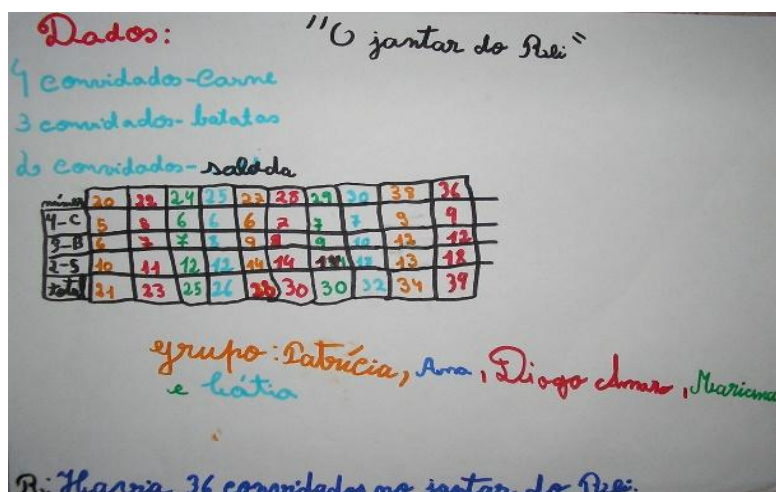 Dados: "O jantar do Rei"
4 convidados-Carne
3 convidados-batatas
2 convidados-salada
20 22 24 25 27 28 29 30 38 36
4-C 5 6 6 6 7 7 7 9 9
3-B 6 7 7 8 9 9 10 12 12
2-S 10 11 12 12 14 14 13 18
total 21 23 25 26 28 30 30 32 34 39
grupo: Patrícia, Ana, Diogo Amaro, Mariana
e Cátia
R: Havia 36 convidados no jantar do Rei.